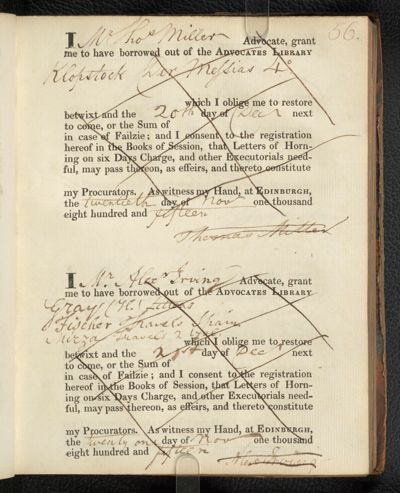 56.
I Mr Thos Miller Advocate, grant
me to have borrowed out of the ADVOCATES LIBRARY
Klopstock Der Messias 4°
which I oblige me to restore
betwixt and the 20th day of Decr next
to come, or the Sum of
in case of Failzie; and I consent to the registration
hereof in the Books of Session, that Letters of Horn-
ing on six Days Charge, and other Executorials need-
ful, may pass thereon, as effeirs, and thereto constitute
my Procurators. As witness my Hand, at EDINBURGH,
the twentieth day of Novr one thousand
eight hundred and fifteen
Thomas Miller
I Mr. Alexr Irving Advocate, grant
me to have borrowed out of the ADVOCATES LIBRARY
Grays Letters
Fischer Travels Spain
Mirza Travels 2
which I oblige me to restore
betwixt and the 21st day of Decr next
to come, or the Sum of
in case of Failzie; and I consent to the registration
hereof in the Books of Session, that Letters of Horn-
ing on six Days Charge, and other Executorials need-
ful, may pass thereon, as effeirs, and thereto constitute
my Procurators. As witness my Hand, at EDINBURGH,
the twenty one day of Novr one thousand
eight hundred and fifteen
Alexr Irving